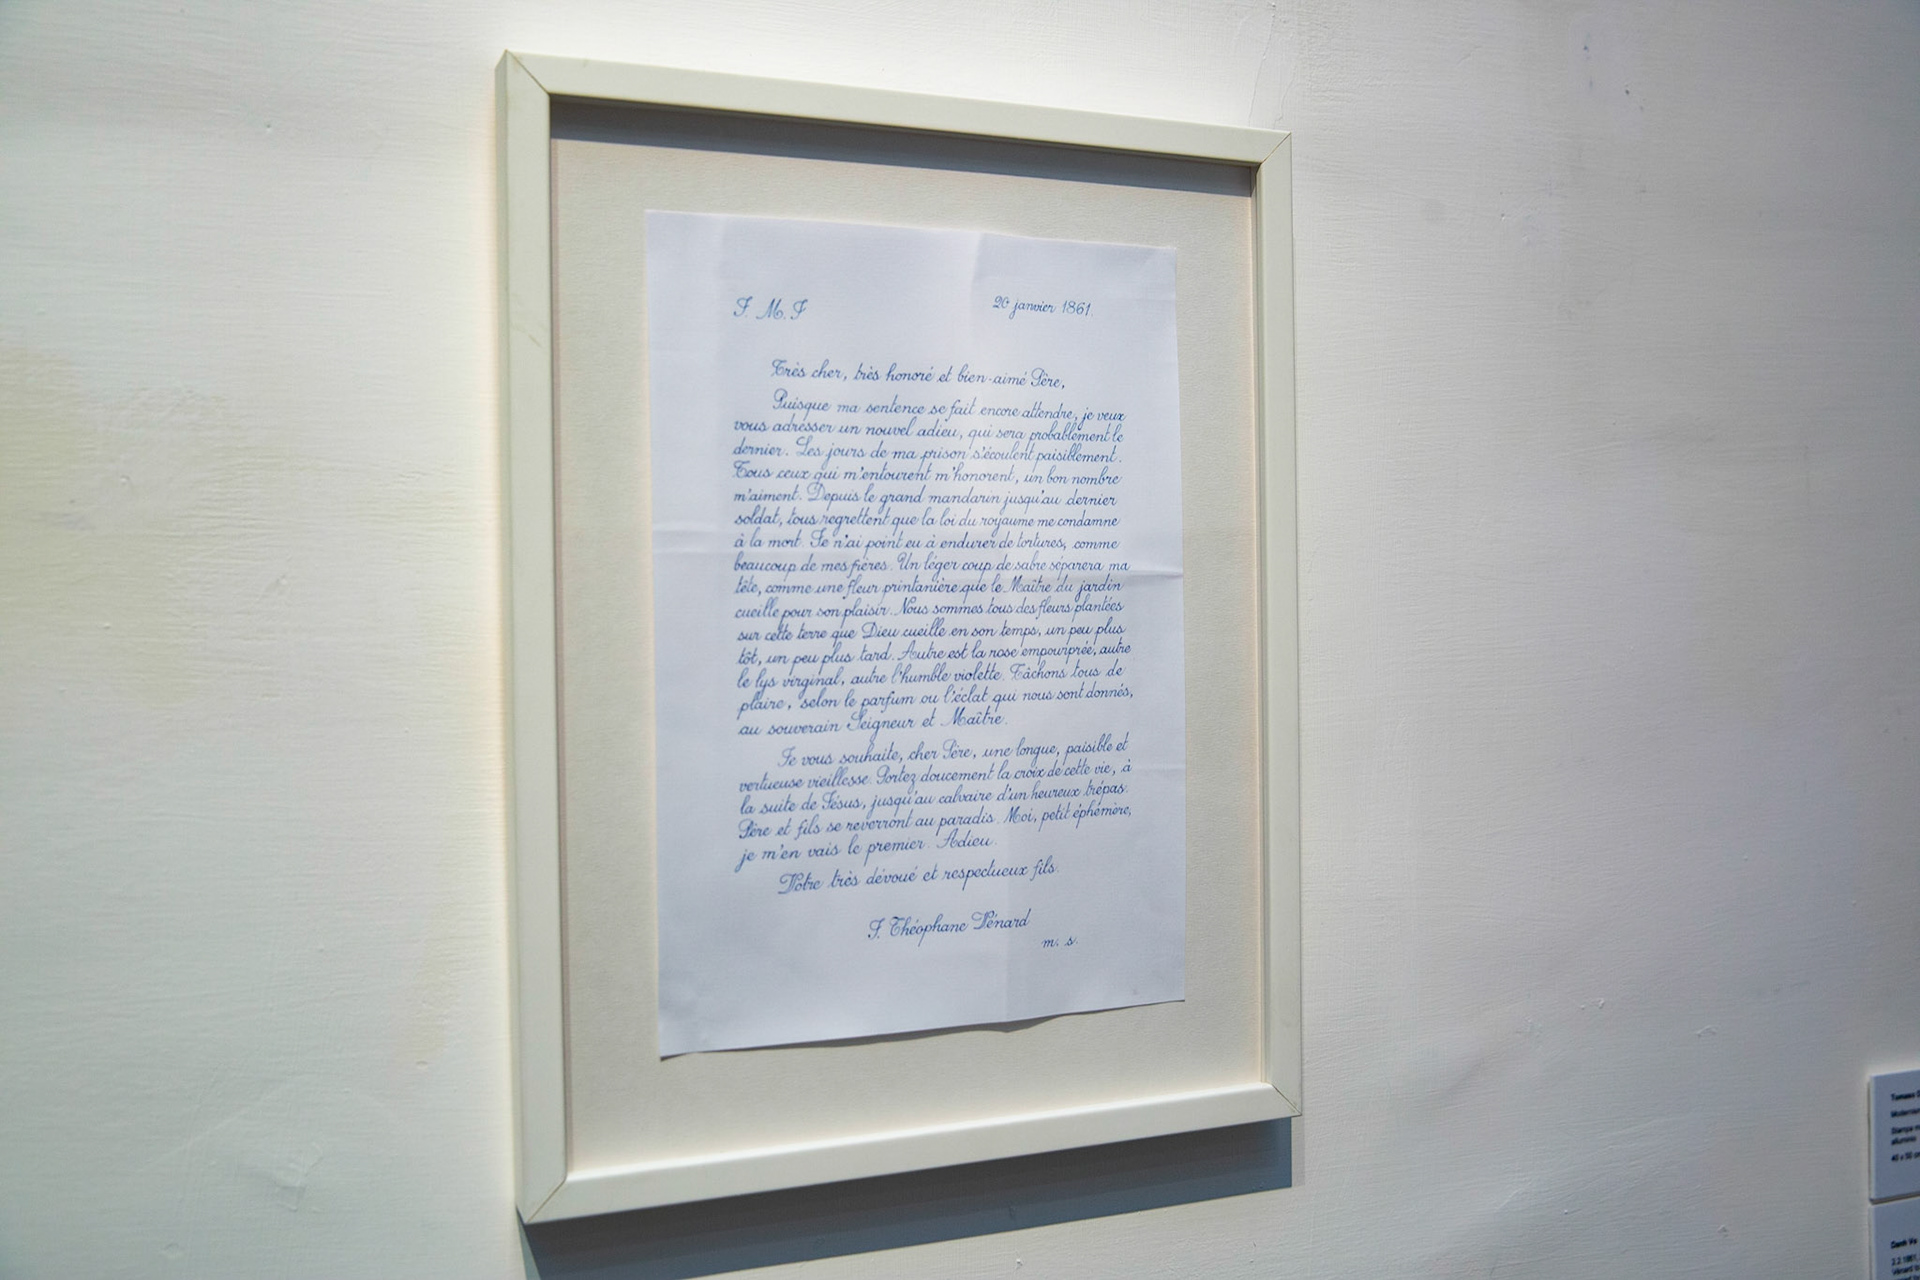 J. M. J.
20 janvier 1861.
Très cher, très honoré et bien-aimé Père,
Puisque ma sentence se fait encore attendre, je veux
vous adresser un nouvel adieu, qui sera probablement le
dernier. Les jours de ma prison s'écoulent paisiblement.
Tous ceux qui m'entourent m'honorent, un bon nombre
m'aiment. Depuis le grand mandarin jusqu'au dernier
soldat, tous regrettent que la loi du royaume me condamne
à la mort. Je n'ai point eu à endurer de tortures, comme
beaucoup de mes frères. Un léger coup de sabre séparera ma
tête, comme une fleur printanière que le Maître du jardin
cueille pour son plaisir. Nous sommes tous des fleurs plantées
sur cette terre que Dieu cueille en son temps, un peu plus
tôt, un peu plus tard. Autre est la rose empourprée, autre
le lys virginal, autre l'humble violette. Tâchons tous de
plaire, selon le parfum ou l'éclat qui nous sont donnés,
au souverain Seigneur et Maître.
Je vous souhaite, cher Père, une longue, paisible et
vertueuse vieillesse. Portez doucement la croix de cette vie, à
la suite de Jésus, jusqu'au calvaire d'un heureux trépas.
Père et fils se reverront au paradis. Moi, petit éphémère,
je m'en vais le premier. Adieu.
Votre très dévoué et respectueux fils.
J. Théophane Vénard
m. s.
Tomaso
Stampa
alluminio
40 x 50
Danh Vo
2.2.1861,
Vénard